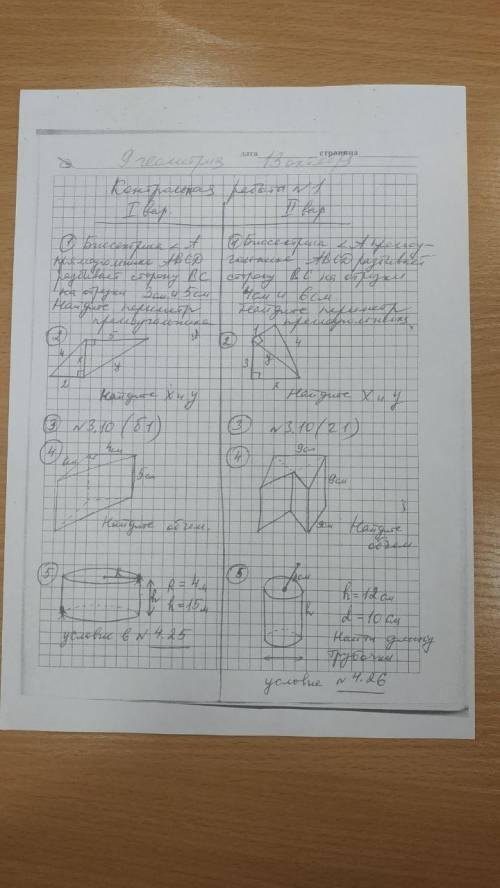 дата страница
9 геометрия 13 октября
Контрольная работа №1
I вар.
① Биссектриса ∠A
прямоугольника ABCD
разбивает сторону BC
на отрезки 3см 45см
Найдите периметр
прямоугольника
② 5
4 x y
2
Найдите X и y
③ №3.10 (б1)
④ 4см
6см
9см
Найдите объем.
⑤ R
h
R = 4м
h = 15м
условие в № 4.25
II вар
① Биссектриса ∠A прямоу-
гольника ABCD разбивает
сторону BC на отрезки
4см и 6см
Найдите периметр
прямоугольника
② 1
4
3 y
x
Найдите X и y
③ №3.10 (г1)
④ 9см
9см
9см
Найдите
объем
h
h = 12см
d = 10см
Найти длину
трубочки
условие №4.26